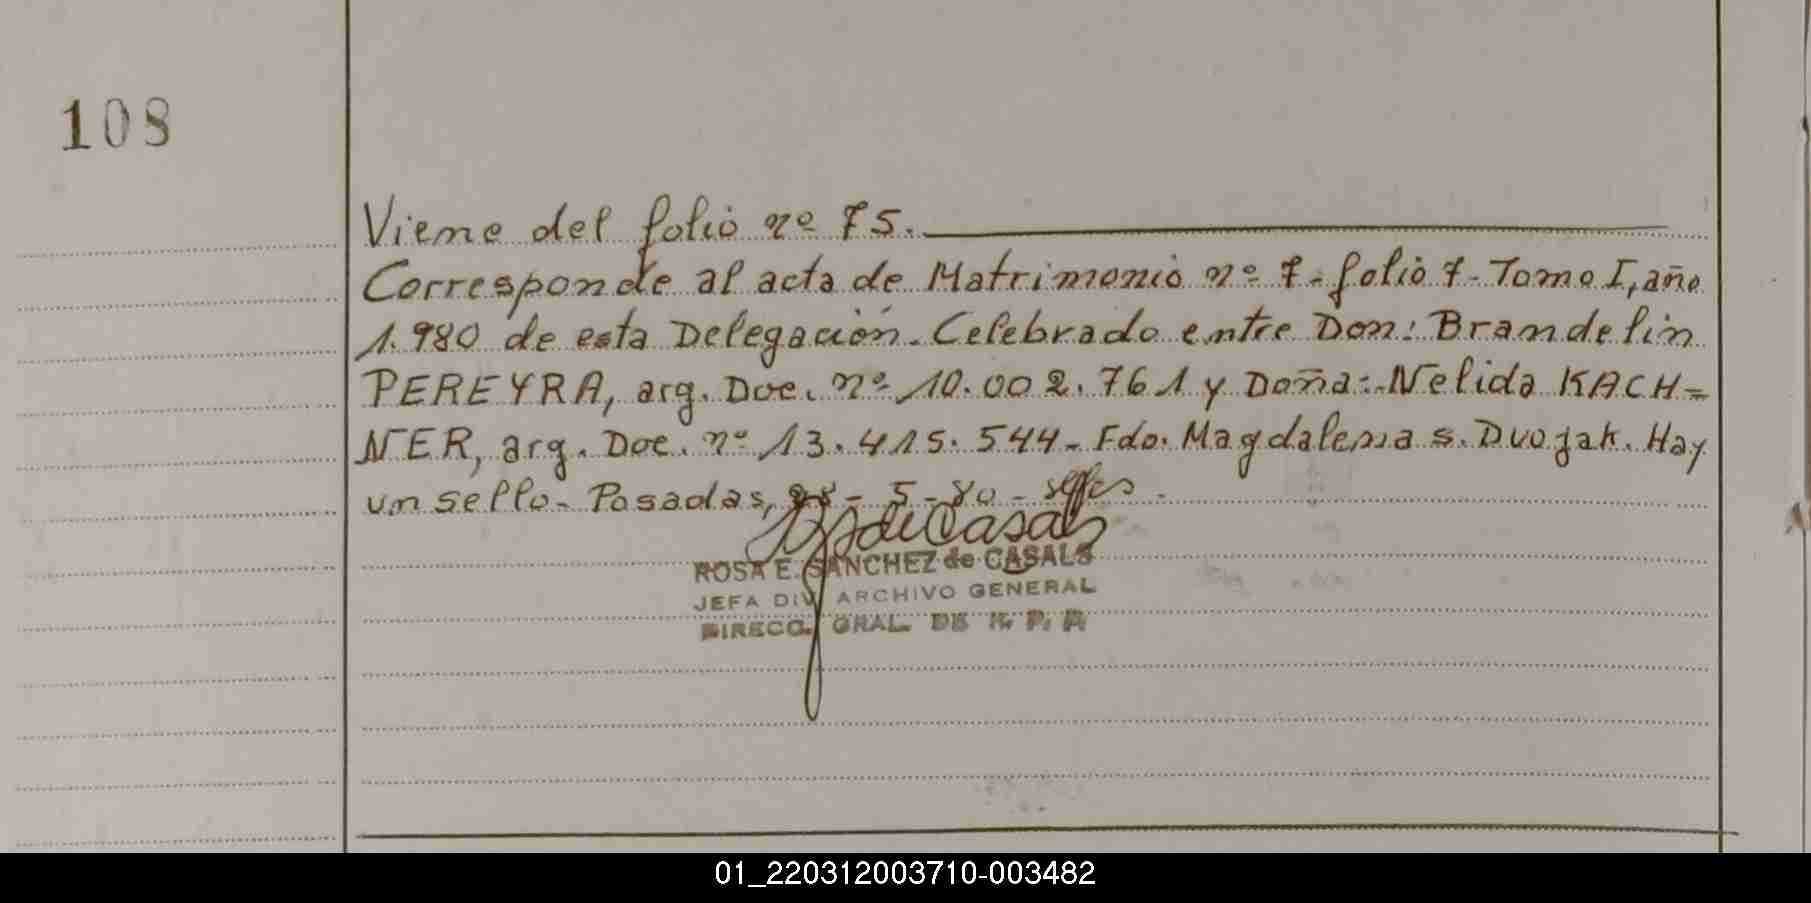 108
Viene del folio nº 75.
Corresponde al acta de Matrimonio nº 7- folio 7- Tomo I, año
1.980 de esta Delegación. Celebrado entre Don: Brandelin
PEREYRA, arg. Doc. nº 10.002.761 y Doña: Nelida KACH=
NER, arg. Doc. nº 13.415.544- Fdo. Magdalena S. Dvojak. Hay
un sello- Posadas, 28- 5-80-
de Casals
ROSA E. SANCHEZ de CASALS
JEFA DIV. ARCHIVO GENERAL
DIRECC. GRAL. DE R. P. P.
01_220312003710-003482